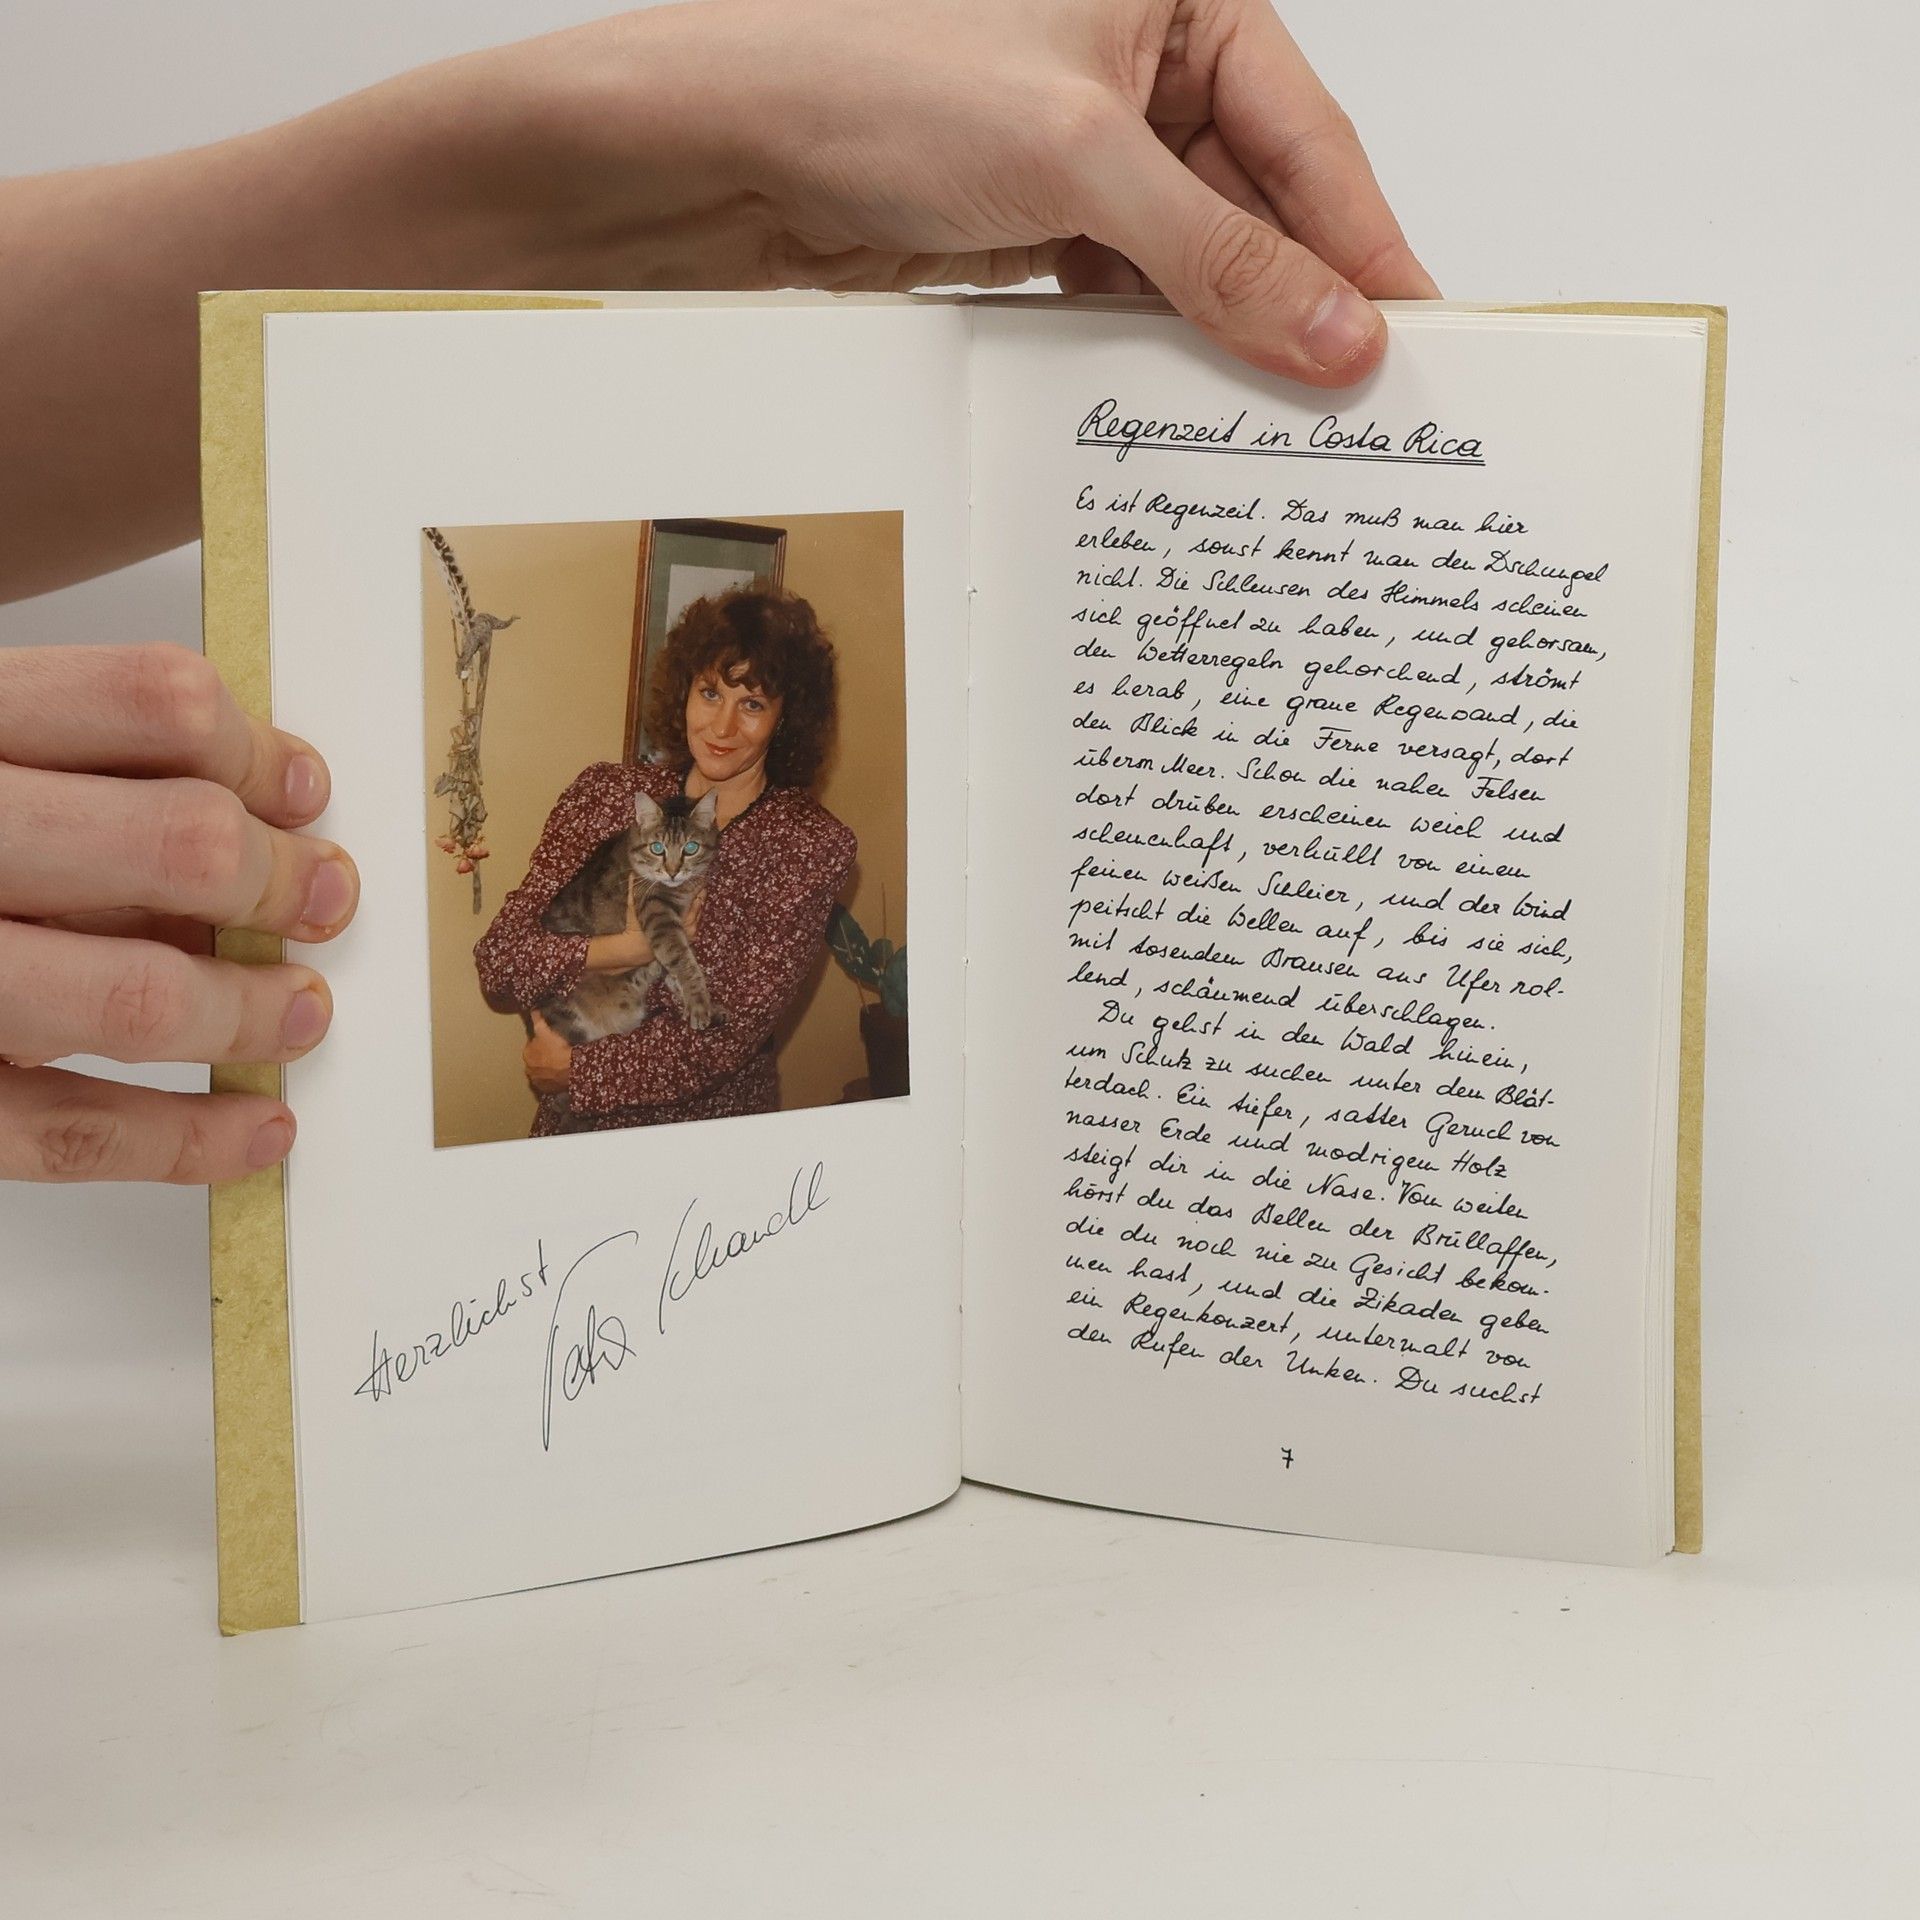 Herzlichst
Schandl
Regenzeit in Costa Rica
Es ist Regenzeit. Das muß man hier
erleben, sonst kennt man den Dschungel
nicht. Die Schleusen des Himmels scheinen
sich geöffnet zu haben, und gehorsam,
den Wetterregeln gehorchend, strömt
es herab, eine graue Regenwand, die
den Blick in die Ferne versagt, dort
überm Meer. Schon die nahen Felsen
dort drüben erscheinen weich und
schemenhaft, verhüllt von einem
feinen weißen Schleier, und der Wind
peitscht die Wellen auf, bis sie sich,
mit tosendem Brausen ans Ufer rol-
lend, schäumend überschlagen.
Du gehst in den Wald hinein,
um Schutz zu suchen unter dem Blät-
terdach. Ein tiefer, satter Geruch von
nasser Erde und modrigem Holz
steigt dir in die Nase. Von weiten
hörst du das Bellen der Brüllaffen,
die du noch nie zu Gesicht bekom-
men hast, und die Zikaden geben
ein Regenkonzert, untermalt von
den Rufen der Unken. Du suchst
7